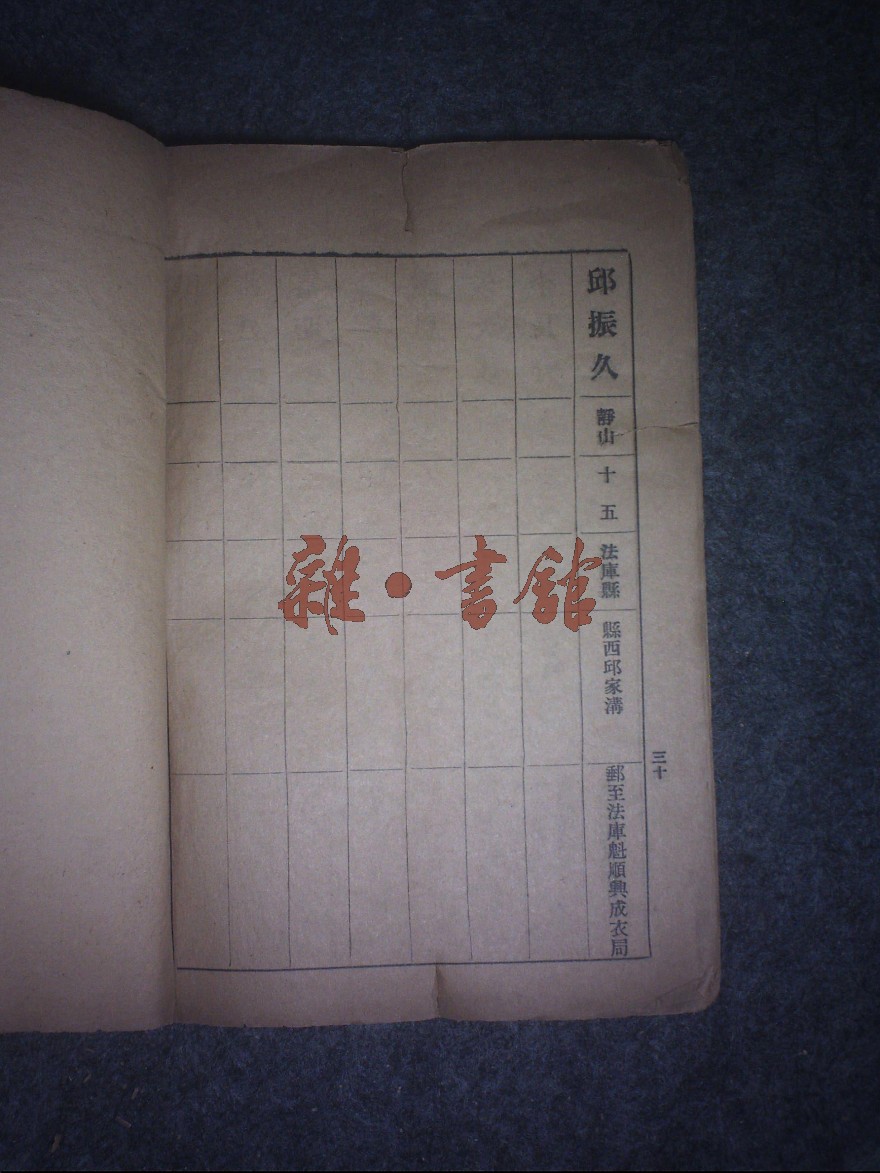 邱振久
靜山
十五
法庫縣
縣西邱家溝
郵至法庫魁順興成衣局
三十
雜·書館